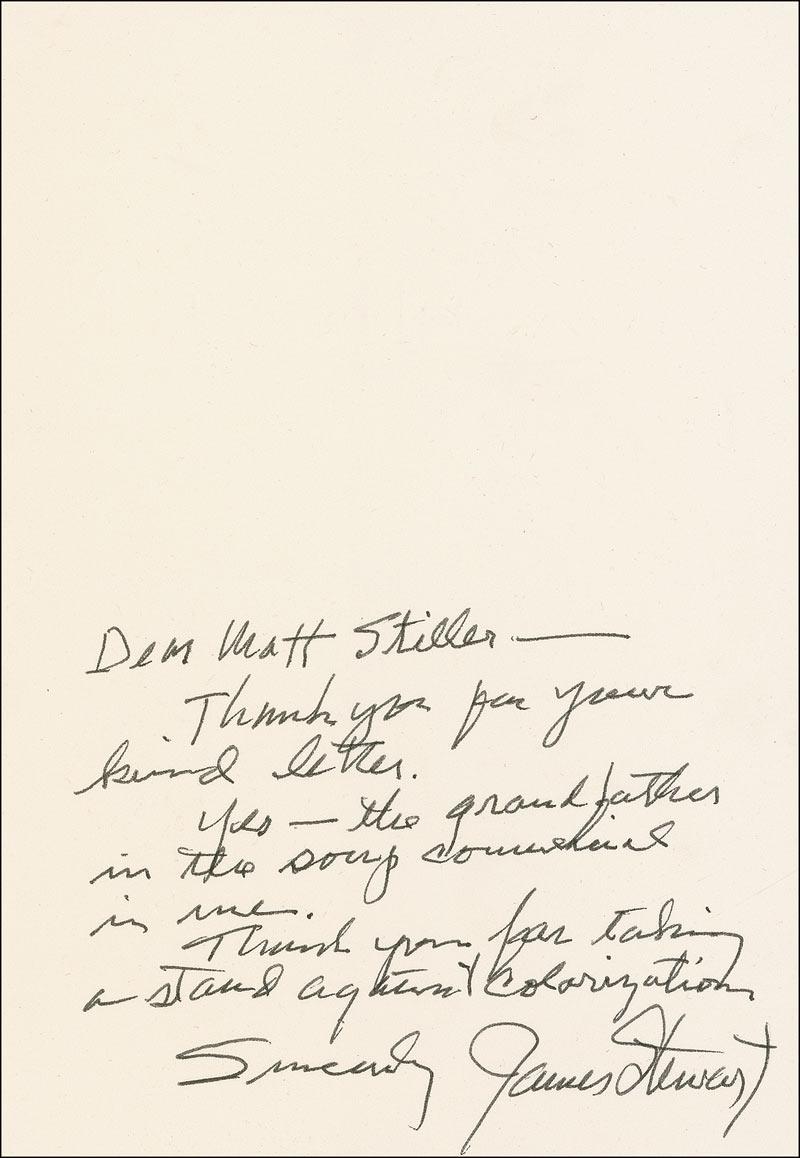 Dear Matt Stiller —
Thank you for your
kind letter.
Yes — the grandfather
in the soup commercial
is me.
Thank you for taking
a stand against colorization
Sincerely James Stewart